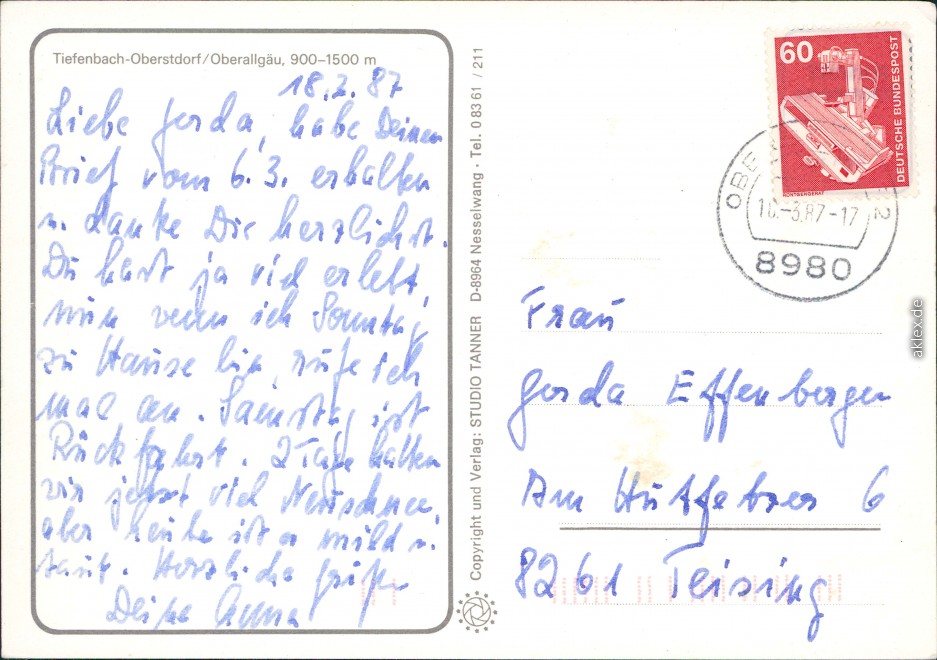 Tiefenbach-Oberstdorf/Oberallgäu, 900–1500 m
Liebe Gerda, habe Deinen
Brief vom 6.3. erhalten
u. danke Dir herzlichst.
Du hast ja viel erlebt,
wenn ich Sonntag
zu Hause bin, rufe ich
mal an. Samstag ist
Rückfahrt. 2 Tage hatten
wir jetzt viel Neuschnee,
aber heute ist es mild u.
taut. Herzliche Grüße
Deine Anna
Copyright und Verlag: STUDIO TANNER D-8964 Nesselwang · Tel. 0 83 61 / 211
60
DEUTSCHE BUNDESPOST
RÖNTGENGERÄT
OBE 2
10.-3.87-17
8980
Frau
Gerda Effenberger
6
8261 Teising
aklex.de